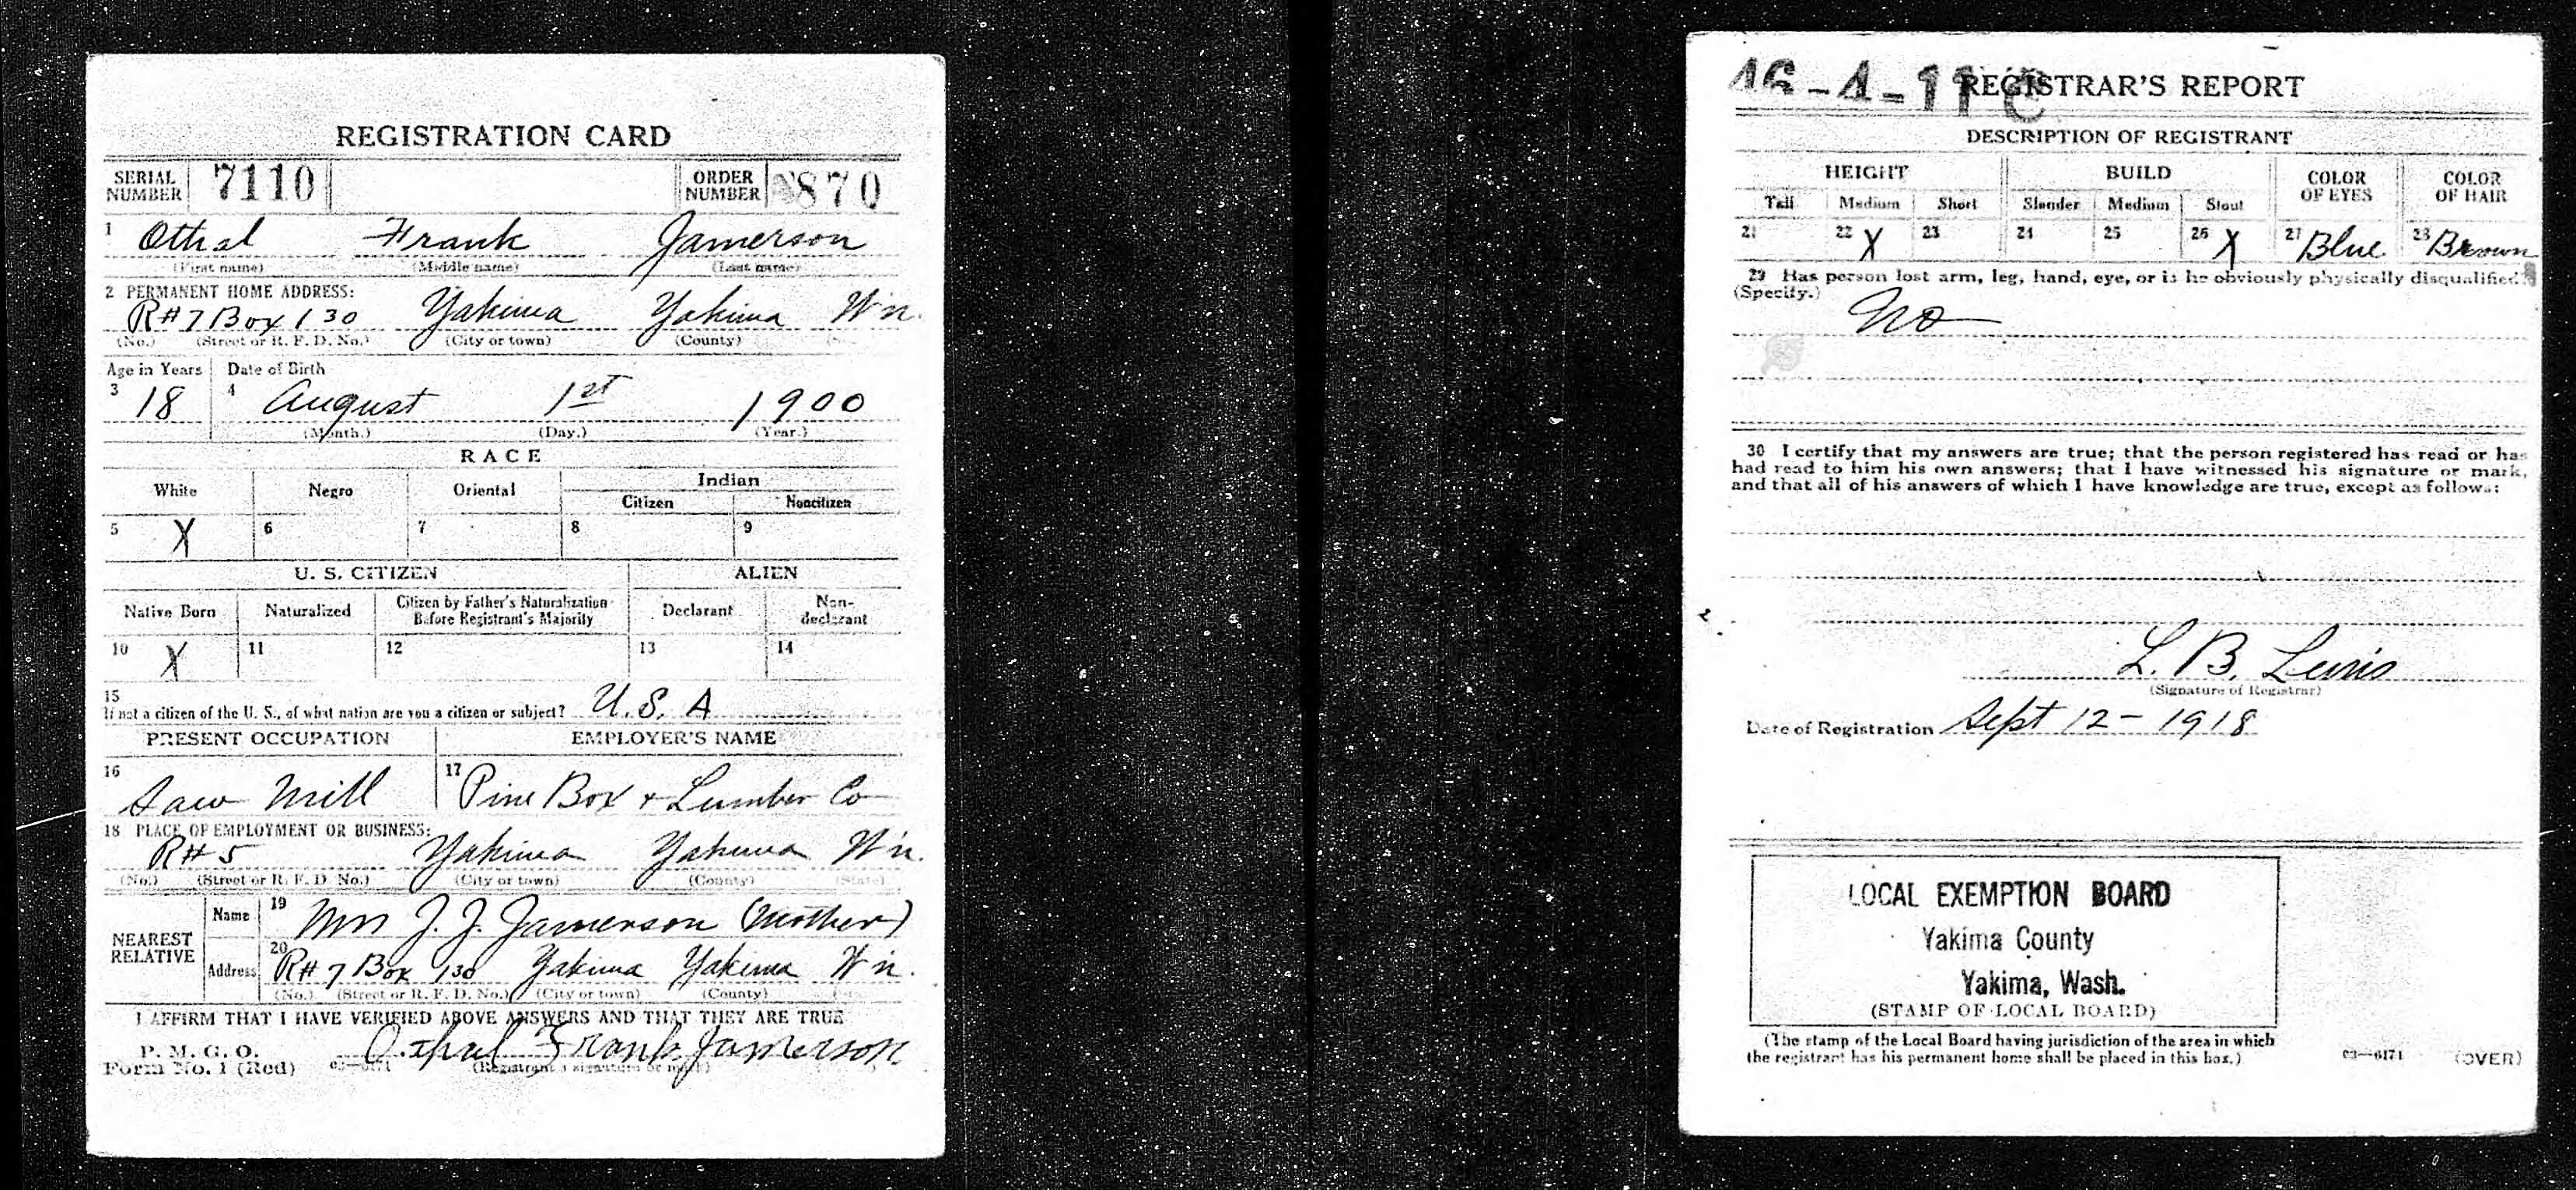 REGISTRATION CARD
SERIAL NUMBER 7110 ORDER NUMBER 870
1 Othal Frank Jamerson
(First name) (Middle name) (Last name)
2 PERMANENT HOME ADDRESS:
R#7 Box 130 Yakima Yakima Wn.
(No.) (Street or R. F. D. No.) (City or town) (County)
Age in Years Date of Birth
3 18 4 August 1st 1900
(Month.) (Day.) (Year.)
RACE
White Negro Oriental Indian
Citizen Noncitizen
5 X 6 7 8 9
U. S. CITIZEN ALIEN
Native Born Naturalized Citizen by Father's Naturalization Before Registrant's Majority Declarant Non-declarant
10 X 11 12 13 14
15
If not a citizen of the U. S., of what nation are you a citizen or subject? U.S.A
PRESENT OCCUPATION EMPLOYER'S NAME
16 Saw Mill 17 Pine Box + Lumber Co
18 PLACE OF EMPLOYMENT OR BUSINESS:
R#5 Yakima Yakima Wn.
(No.) (Street or R. F. D. No.) (City or town) (County) (State)
NEAREST RELATIVE
Name 19 Mrs J. J. Jamerson (Mother)
Address 20 R#7 Box 130 Yakima Yakima Wn.
(No.) (Street or R. F. D. No.) (City or town) (County)
I AFFIRM THAT I HAVE VERIFIED ABOVE ANSWERS AND THAT THEY ARE TRUE
P. M. G. O.
Form No. 1 (Red) 03—6171 Othal Frank Jamerson
(Registrant's signature or mark)
46-4-11 C
REGISTRAR'S REPORT
DESCRIPTION OF REGISTRANT
HEIGHT BUILD COLOR OF EYES COLOR OF HAIR
Tall Medium Short Slender Medium Stout
21 22 X 23 24 25 26 X 27 Blue 28 Brown
29 Has person lost arm, leg, hand, eye, or is he obviously physically disqualified?
(Specify.) No
30 I certify that my answers are true; that the person registered has read or has
had read to him his own answers; that I have witnessed his signature or mark,
and that all of his answers of which I have knowledge are true, except as follows:
L. B. Lewis
(Signature of Registrar)
Date of Registration Sept 12 - 1918
LOCAL EXEMPTION BOARD
Yakima County
Yakima, Wash.
(STAMP OF LOCAL BOARD)
(The stamp of the Local Board having jurisdiction of the area in which
the registrant has his permanent home shall be placed in this box.)
03—6171 (OVER)